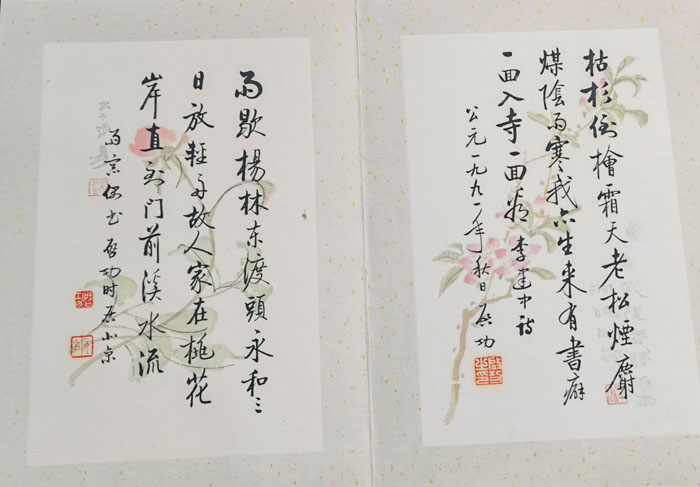 枯杉倒檜霜天老松煙麝
煤陰雨寒我亦生来有書癖
一囬入寺一囬看 李建中詩
公元一九九一年秋日启功
雨歇楊林东渡頭永和三
日放輕舟故人家在桃花
岸直到门前溪水流
雨 偶书 启功时居北京